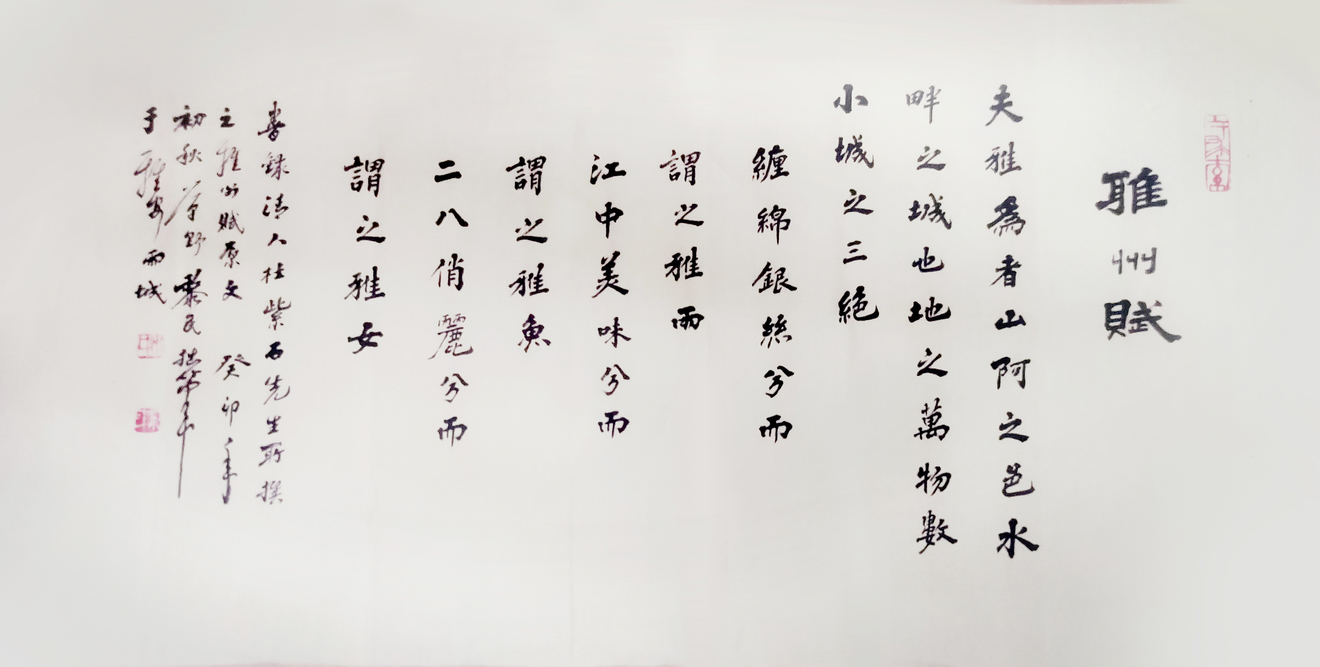 雅州賦
夫雅為者山阿之邑水
畔之城也地之萬物數
小城之三絕
纏綿銀絲兮而
謂之雅雨
江中美味兮而
謂之雅魚
二八俏麗兮而
謂之雅女
書錄清人杜紫石先生所撰
之雅州賦原文 癸卯年
初秋 草野黎民拙筆
于雅安雨城